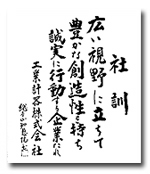 社訓
広い視野に立ちて
豊かな創造性を持ち
誠実に行動する企業たれ
工業計器株式会社